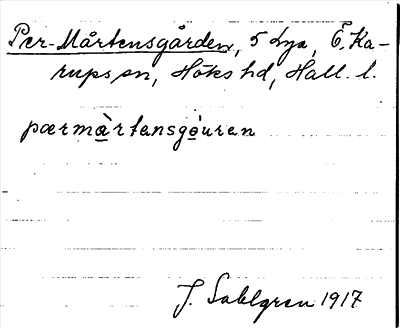 Per-Mårtensgården, 5 Lya, Ö. Ka-
rups sn, Höks hd, Hall. l.
pærmà̱rtənsgo̱̍uren
J. Sahlgren 1917